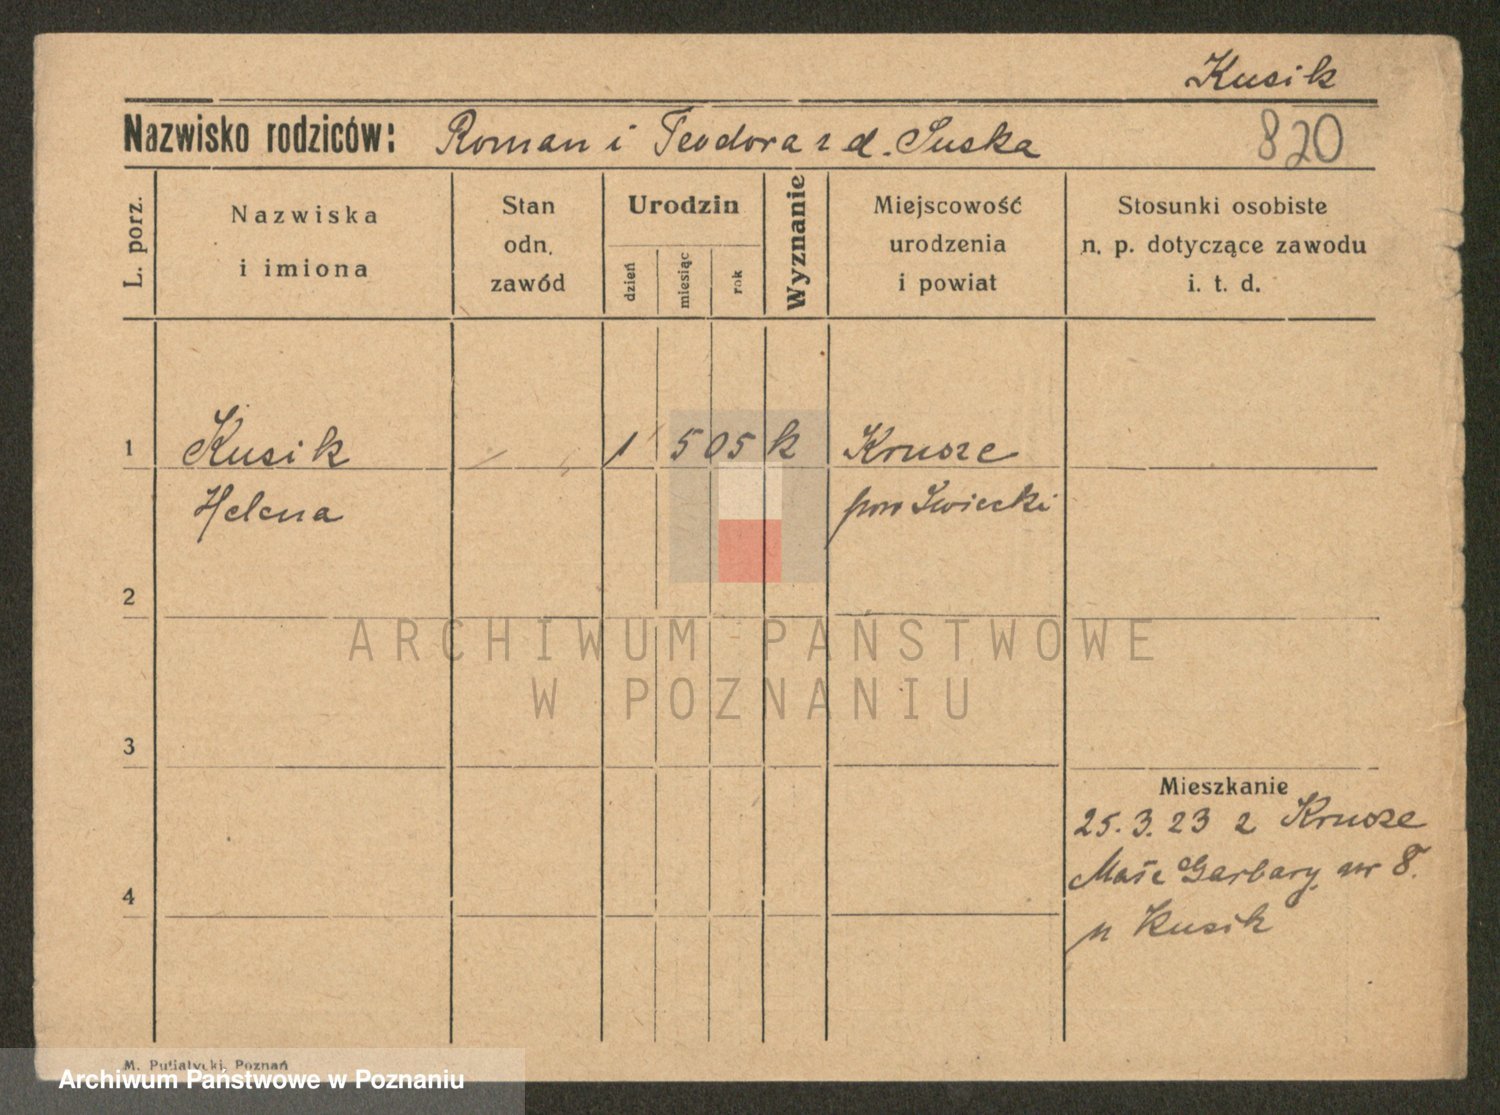 Kusik
Nazwisko rodziców: Roman i Teodora z d. Suska
820
L. porz.
Nazwiska
i imiona
Stan
odn.
zawód
Urodzin
dzień
miesiąc
rok
Wyznanie
Miejscowość
urodzenia
i powiat
Stosunki osobiste
n. p. dotyczące zawodu
i. t. d.
1 Kusik 1 5 05 k Krusze
Helena pow Świecki
2
ARCHIWUM PAŃSTWOWE
W POZNANIU
3
Mieszkanie
25. 3. 23 z Krusze
Małe Garbary nr 8.
4
u Kusik
M. Putiatycki, Poznań
Archiwum Państwowe w Poznaniu